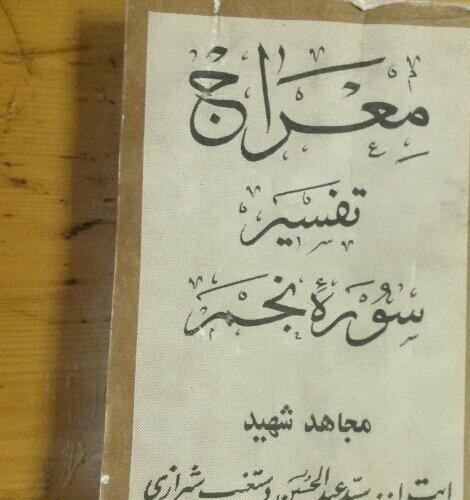 معراج
تفسیر
سورهٔ نجم
مجاهد شهید
آیت ا... سید عبدالحسین دستغیب شیرازی